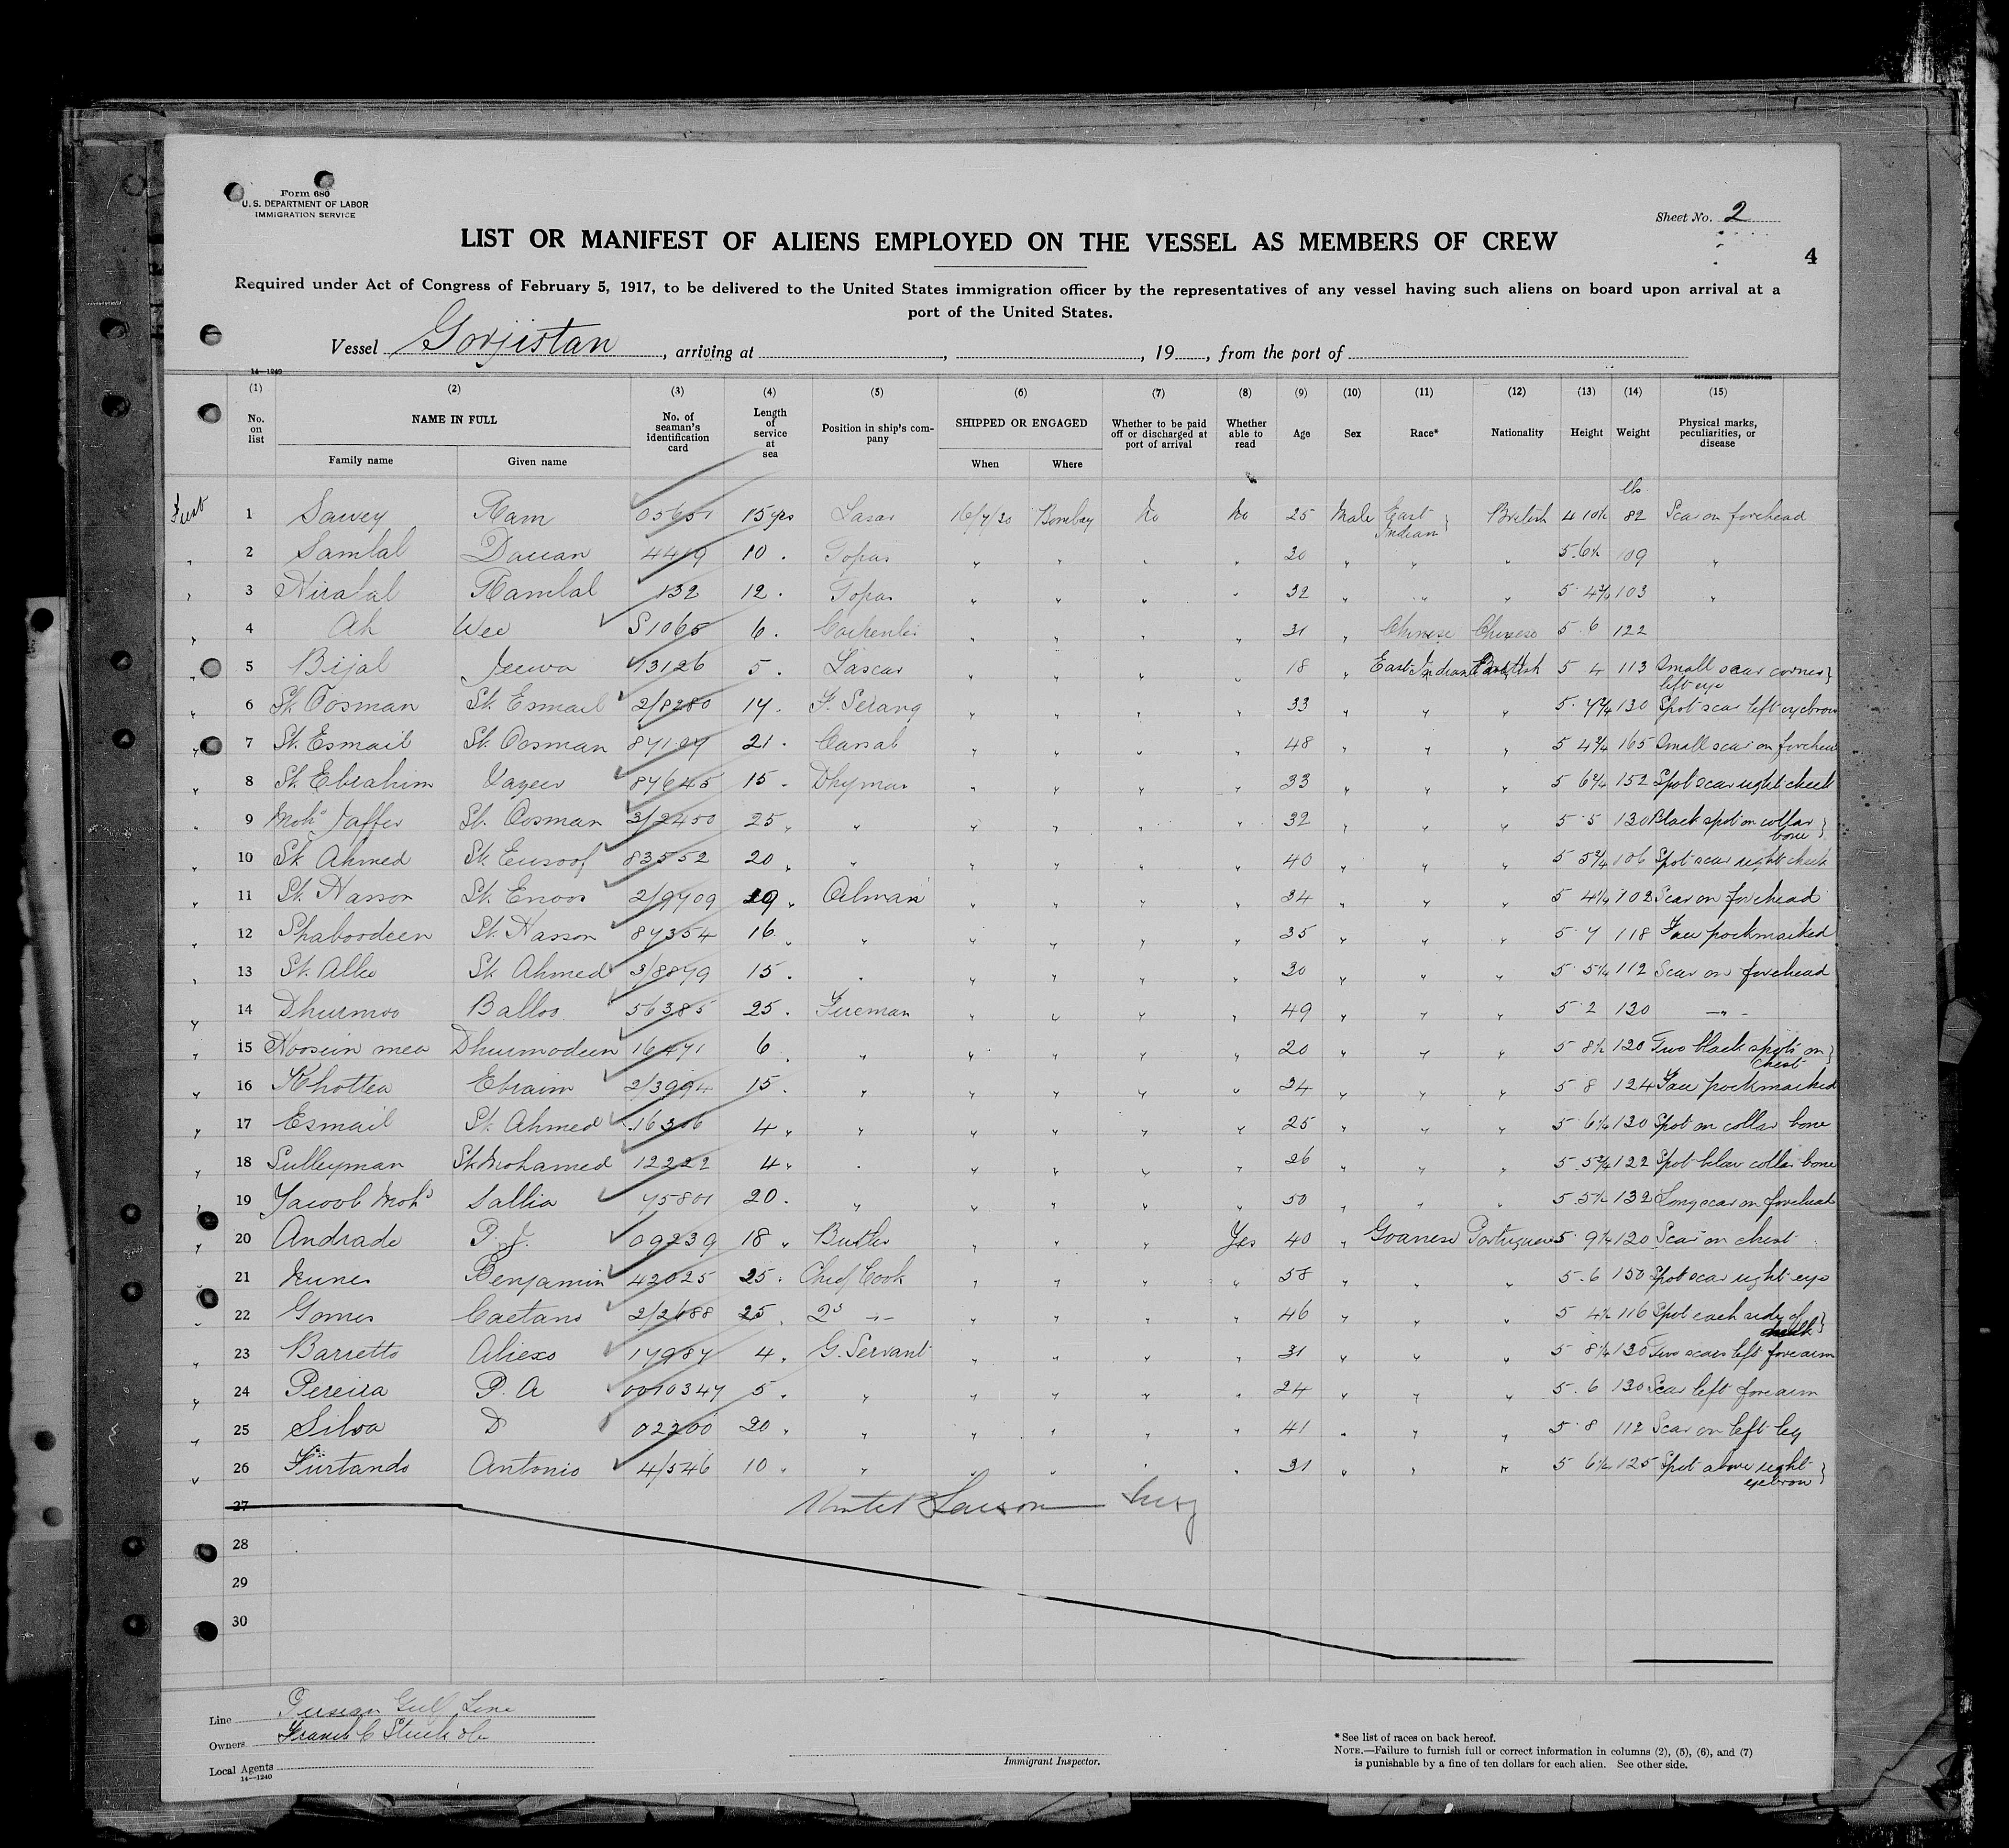 Form 680
U. S. DEPARTMENT OF LABOR
IMMIGRATION SERVICE
Sheet No. 2
4
LIST OR MANIFEST OF ALIENS EMPLOYED ON THE VESSEL AS MEMBERS OF CREW
Required under Act of Congress of February 5, 1917, to be delivered to the United States immigration officer by the representatives of any vessel having such aliens on board upon arrival at a
port of the United States.
Vessel Gorjistan, arriving at , , 19 , from the port of
14—1240
(1) (2) (3) (4) (5) (6) (7) (8) (9) (10) (11) (12) (13) (14) (15)
No. on list NAME IN FULL Family name Given name No. of seaman's identification card Length of service at sea Position in ship's company SHIPPED OR ENGAGED When Where Whether to be paid off or discharged at port of arrival Whether able to read Age Sex Race* Nationality Height Weight Physical marks, peculiarities, or disease
lbs
1 Sawey Ram 05651 15 yrs Lascar 16/7/20 Bombay No No 25 Male East Indian } British 4 10½ 82 Scar on forehead
2 Samlal 4419 10 Topas " " " " 20 " " " 5.6½ 109 "
3 Hiralal Ramlal 132 12 Topas " " " " 32 " " " 5 4¾ 103 "
4 Ah Wee S1065 6 " " " " 31 " Chinese Chinese 5 6 122
5 Bijal Jeewa 13126 5 Lascar " " " " 18 " East Indian British 5 4 113 Small scar corner } left eye
6 Sk. Oosman Sk Esmail 2/8280 14 F. Serang " " " " 33 " " " 5 7¾ 130 Spot scar left eyebrow
7 Sk. Esmail Sk. Oosman 21 Cassab " " " " 48 " " " 5 4¾ 165 Small scar on forehead
8 Sk Ebrahim Vazeer 87645 15 " " " " 33 " " " 5 6¾ 152 Spot scar right cheek
9 Mohd Jaffer Sk. Oosman 3/2450 25 " " " " " 32 " " " 5 5 130 Black spot on collar bone }
10 Sk Ahmed Sk. Eusoof 83552 20 " " " " " 40 " " " 5 5¾ 106 Spot scar right cheek
11 Sk. Hasson Sk. Enoos 2/9709 29 Oilman " " " " 34 " " " 5 4¼ 102 Scar on forehead
12 Shaboodeen Sk. Hasson 87354 16 " " " " " 35 " " " 5 7 118 Face pockmarked
13 Sk. Allee Sk Ahmed 3/8879 15 " " " " " 30 " " " 5 5¼ 112 Scar on forehead
14 Dhurmoo Balloo 56385 25 Fireman " " " " 49 " " " 5 2 120 —"—
15 Hoosein mea Dhurmodeen 16471 6 " " " " " 20 " " " 5 8½ 120 Two black spots on } chest
16 Khottea Ebraim 2/3994 15 " " " " " 34 " " " 5 8 124 Face pockmarked
17 Esmail Sk. Ahmed 16306 4 " " " " " 25 " " " 5 6¼ 120 Spot on collar bone
18 Sulleyman Sk Mohamed 12222 4 " " " " " 26 " " " 5 5¾ 122 Spot below collar bone
19 Yacoob Mohd Sallia 75801 20 " " " " " 50 " " " 5 5½ 132 Long scar on forehead
20 Andrade P. J. 09239 18 Butler " " " Yes 40 " Goanese Portuguese 5 9¼ 120 Scar on chest
21 Nunes Benjamin 42025 25 Chief Cook " " " " 58 " " " 5.6 150 Spot scar right eye
22 Gomes Caetano 2/2688 25 2d —"— " " " " 46 " " " 5 4½ 116 Spot each side of cheek }
23 Barretto Aliexo 17987 4 G. Servant " " " " 31 " " " 5 8¼ 130 Two scars left forearm
24 Pereira P. A 0010347 5 " " " " " 24 " " " 5.6 130 Scar left forearm
25 Silva D 02200 20 " " " " " 41 " " " 5 8 112 Scar on left leg
26 Furtando Antonio 4/546 10 " " " " " 31 " " " 5 6½ 125 Spot above right eyebrow }
27
28
29
30
Line Persian Gulf Line
Owners Frank C Strick & Co
Local Agents
14—1240
Immigrant Inspector.
* See list of races on back hereof.
NOTE.—Failure to furnish full or correct information in columns (2), (5), (6), and (7)
is punishable by a fine of ten dollars for each alien. See other side.